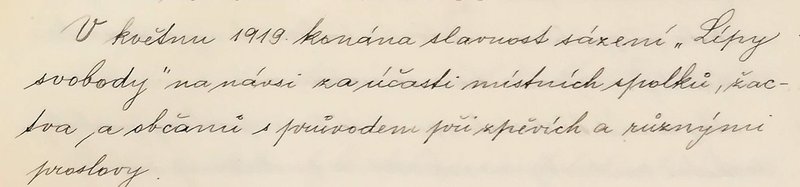 V květnu 1919. konána slavnost sázení „Lípy
svobody" na návsi za účasti místních spolků, žac-
tva, a občanů s průvodem při zpěvích a různými
proslovy.